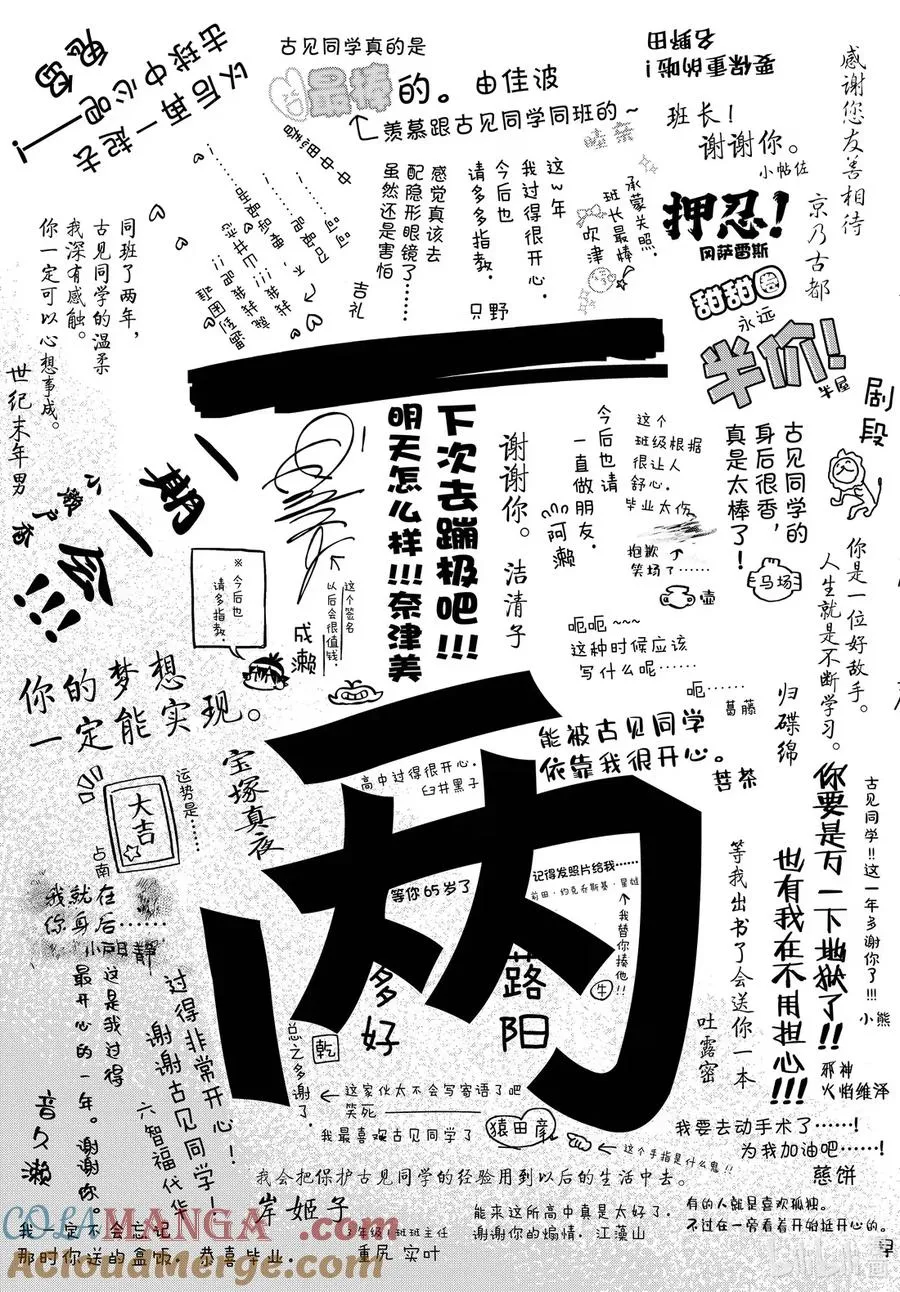 以后再一起去
击球中心吧——！
古见同学真的是
最棒的。由佳波
羡慕跟古见同学同班的～
要保重的啦！
名野田
班长！
谢谢你。
小帖佐
感谢您友善相待
京乃古都
押忍！
冈萨雷斯
承蒙关照。
班长最棒
吹津
这w年
我过得很开心，
今后也
请多多指教。
只野
感觉真该去
配隐形眼镜了……
虽然还是害怕
吉礼
甜甜圈
永远
半价！
牛屋
同班了两年，
古见同学的温柔
我深有感触。
你一定可以心想事成。
世纪末年男
一期
一会!!!
※今后也
请多指教。
这个签名
以后会很值钱。
成濑
下次去蹦极吧!!!
明天怎么样!!!奈津美
谢谢你。洁清子
今后也请
一直做朋友。
阿濑
这个
班级根据
很让人
舒心。
毕业太伤
抱歉
笑场了……
壶
古见同学的
身后很香，
真是太棒了！
马场
剧段
你是一位好敌手。
人生就是不断学习。
归碟绵
呃呃~~~
这种时候应该
写什么呢……
呃……
葛藤
你的梦想
一定能实现。
宝塚真夜
运势是……
大吉
占南
能被古见同学
依靠我很开心。
苦茶
高中过得很开心。
臼井黑子
两
等你65岁了
记得发照片给我……
我替你揍他!!
牛
多好
蕗阳
总之多谢了。
乾
等我出书了会送你一本
吐露密
你要是万一下地狱了!!
也有我在不用担心!!!
邪神
火焰维泽
古见同学!!这一年多谢你了!!!
小熊
我就在
你身后……
这是我过得
最开心的一年。谢谢你。
音久濑
过得非常开心！
谢谢古见同学！
六智福代华
这家伙太不会写寄语了吧
笑死
我最喜欢古见同学了
猿田彦
这个手指是什么鬼!!
我要去动手术了……！
为我加油吧……！
慈饼
我会把保护古见同学的经验用到以后的生活中去。
岸姬子
我一定不会忘记
那时你送的盒饭，恭喜毕业。
班主任
重尻 实叶
能来这所高中真是太好了。
谢谢你的煽情，江藻山
有的人就是喜欢孤独。
不过在一旁看着开始挺开心的。
COLORMANGA.COM
AcloudMerge.com